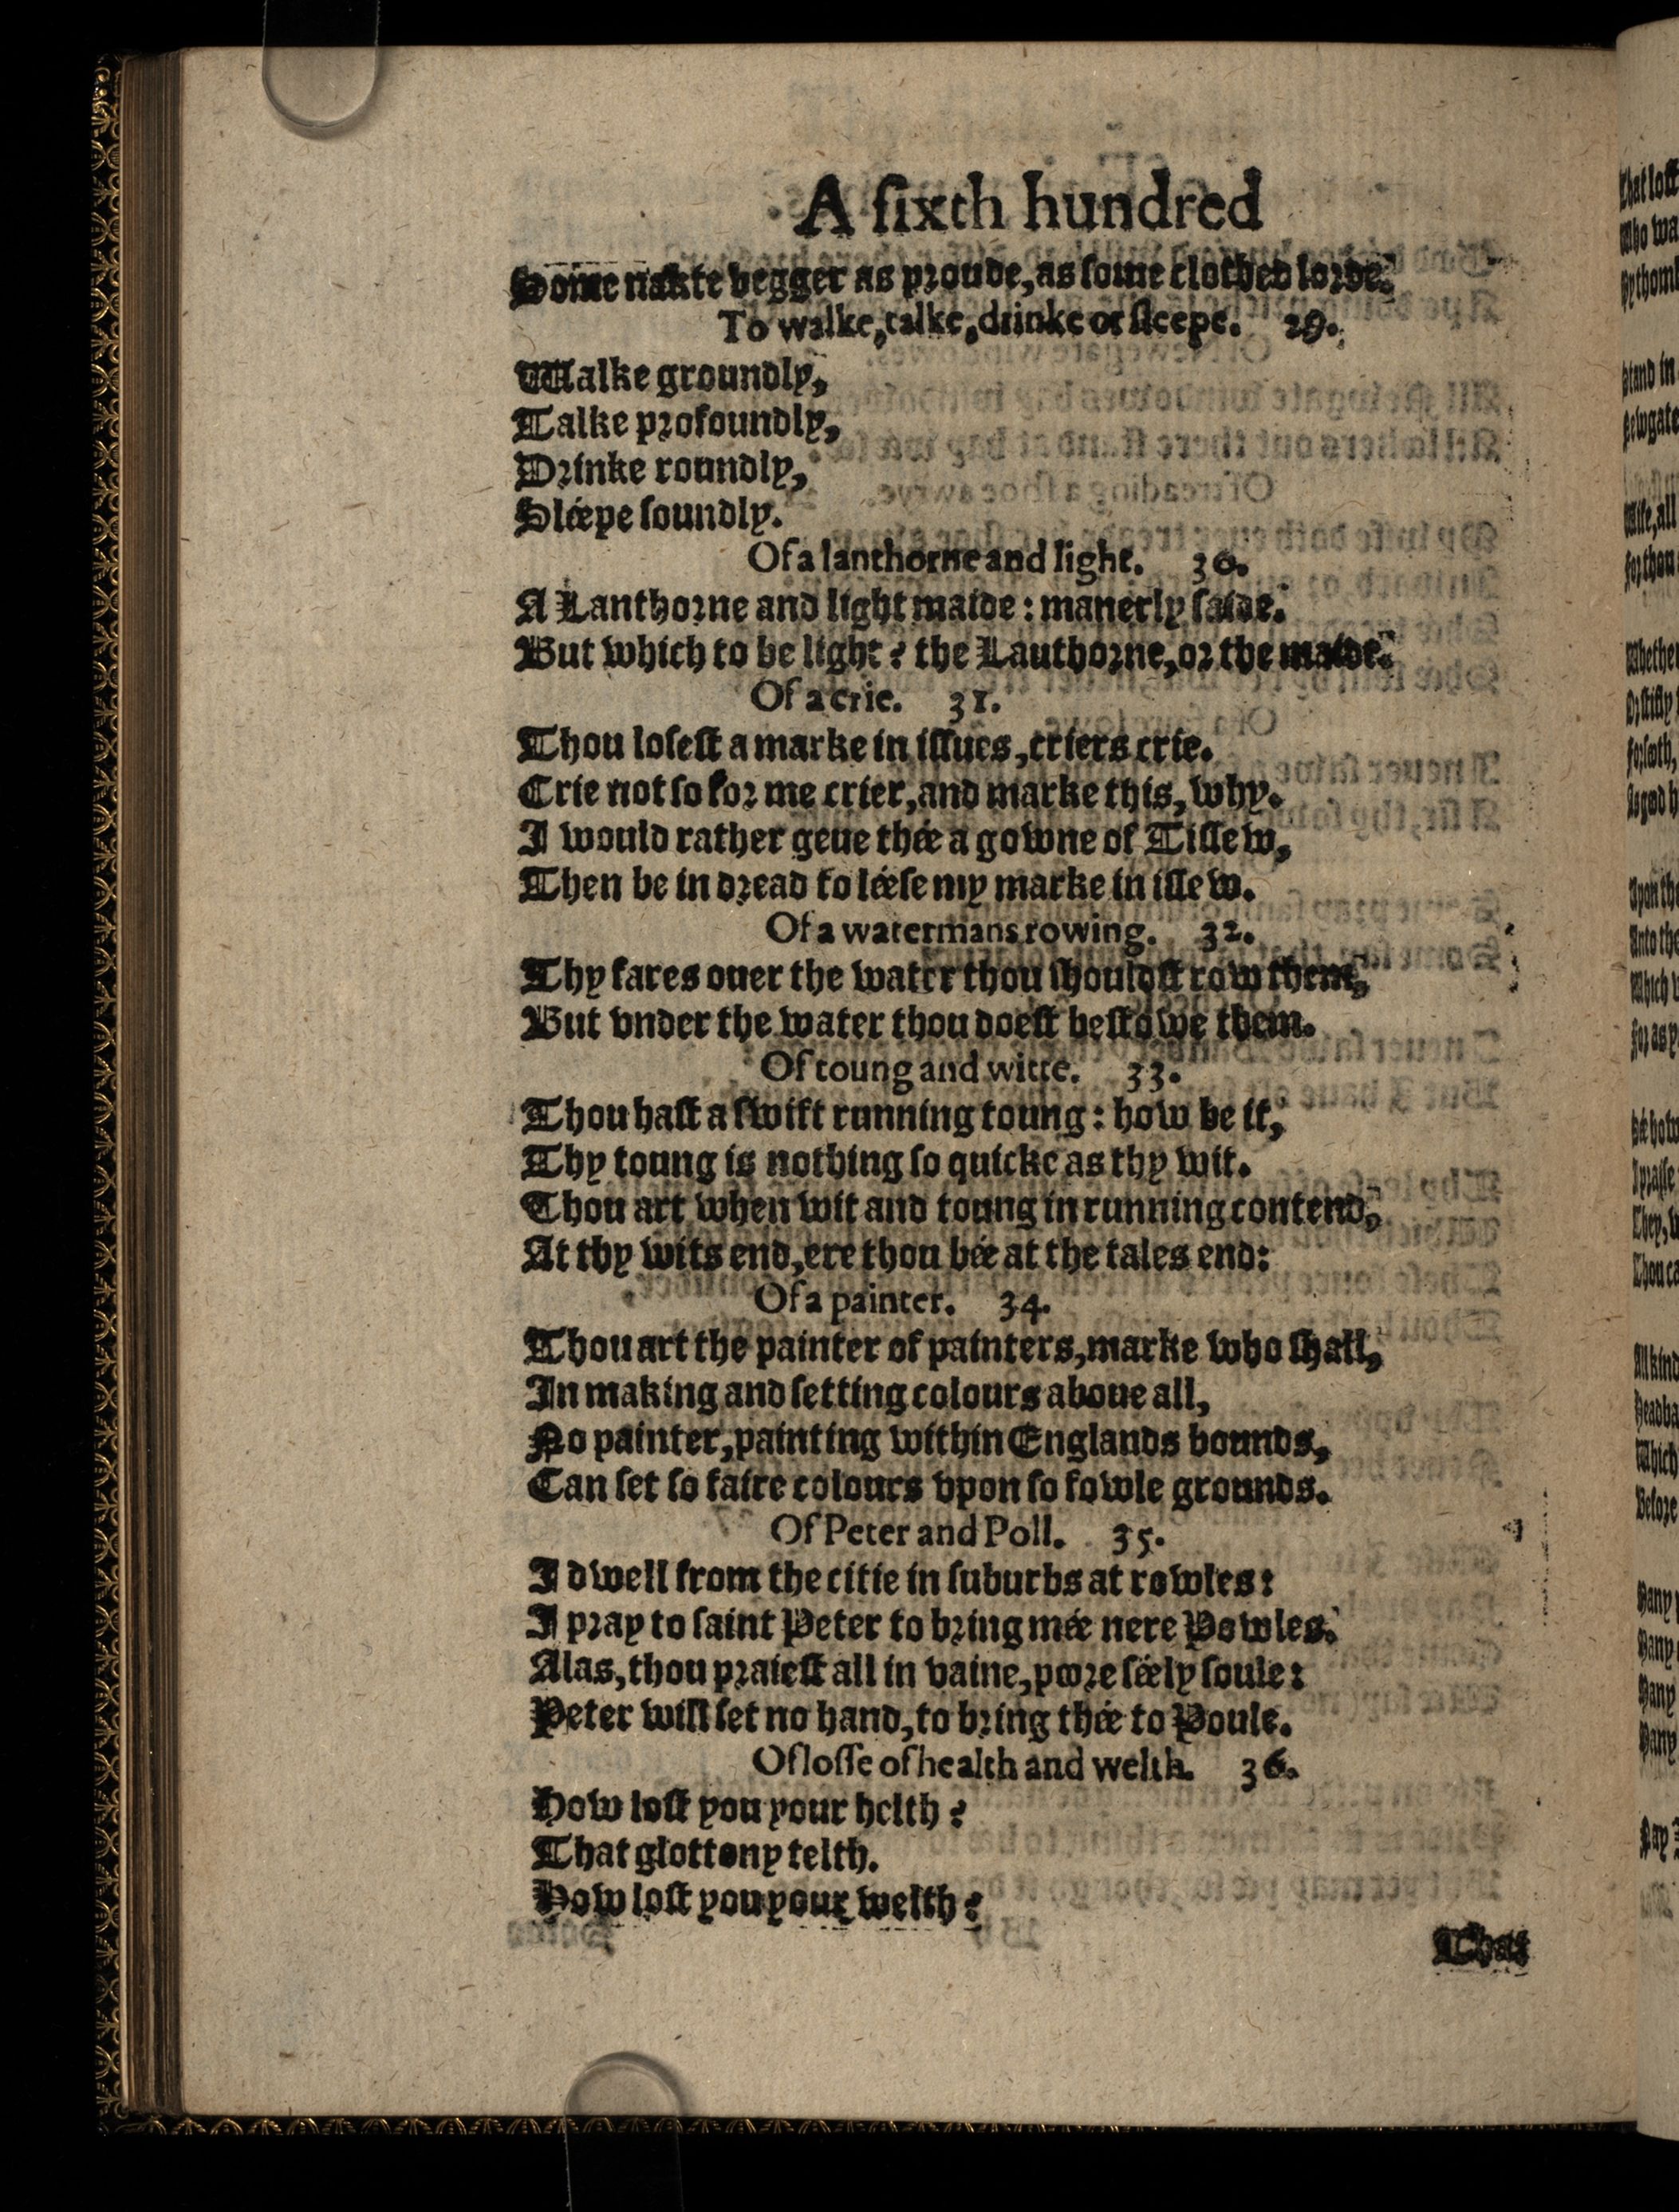 A ſixth hundred
Some nakte begger as proude, as ſome clothed lorde.
To walke, talke, drinke or ſleepe. 29.
Walke groundly,
Talke profoundly,
Drinke roundly,
Sléepe ſoundly.
Of a lanthorne and light. 30.
A Lanthorne and light maide: manerly ſaide.
But which to be light? the Lauthorne, or the maide.
Of a crie. 31.
Thou loſeſt a marke in iſſues, criers crie.
Crie not ſo for me crier, and marke this, why.
I would rather geue thée a gowne of Tiſſew,
Then be in dread to léeſe my marke in iſſew.
Of a watermans rowing. 32.
Thy fares ouer the water thou ſhouldſt row them,
But vnder the water thou doeſt beſtowe them.
Of toung and witte. 33.
Thou haſt a ſwift running toung: how be it,
Thy toung is nothing ſo quicke as thy wit.
Thou art when wit and toung in running contend,
At thy wits end, ere thou bée at the tales end:
Of a painter. 34.
Thou art the painter of painters, marke who ſhall,
In making and ſetting colours aboue all,
No painter, painting within Englands bounds,
Can ſet ſo faire colours vpon ſo fowle grounds.
Of Peter and Poll. 35.
I dwell from the citie in ſuburbs at rowles:
I pray to ſaint Peter to bring mée nere Powles.
Alas, thou praieſt all in vaine, poore ſéely ſoule:
Peter will ſet no hand, to bring thée to Poule.
Of loſſe of health and welth. 36.
How loſt you your helth?
That glottony telth.
How loſt you your welth?
That